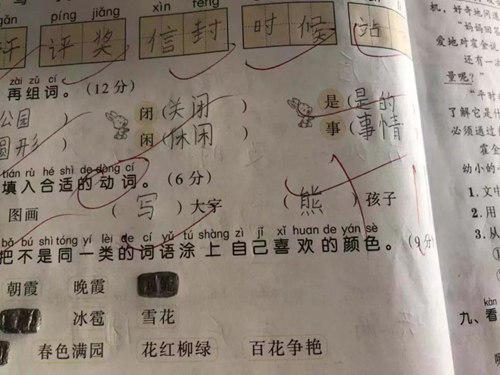 xìn fēng
评奖 信封 时候 站
zài zǔ cí
再组词。(12分)
公园 闭(关闭) 是(是的)
圆形 闲(休闲) 事(事情)
tián rù hé shì de dòng cí
填入合适的动词。(6分)
图画 (写)大字 (熊)孩子
bǎ bú shì tóng yí lèi de cí yǔ tú shàng zì jǐ xǐ huan de yán sè
把不是同一类的词语涂上自己喜欢的颜色。(9分)
朝霞 晚霞
冰雹 雪花
春色满园 花红柳绿 百花争艳
机,好奇地问
"妈妈回答
爱地对霍金
还有一
量呢?"
"平时
了解它是什
必须通过
霍金
幼小的
1.文
2.
3.从
kàn
九、看